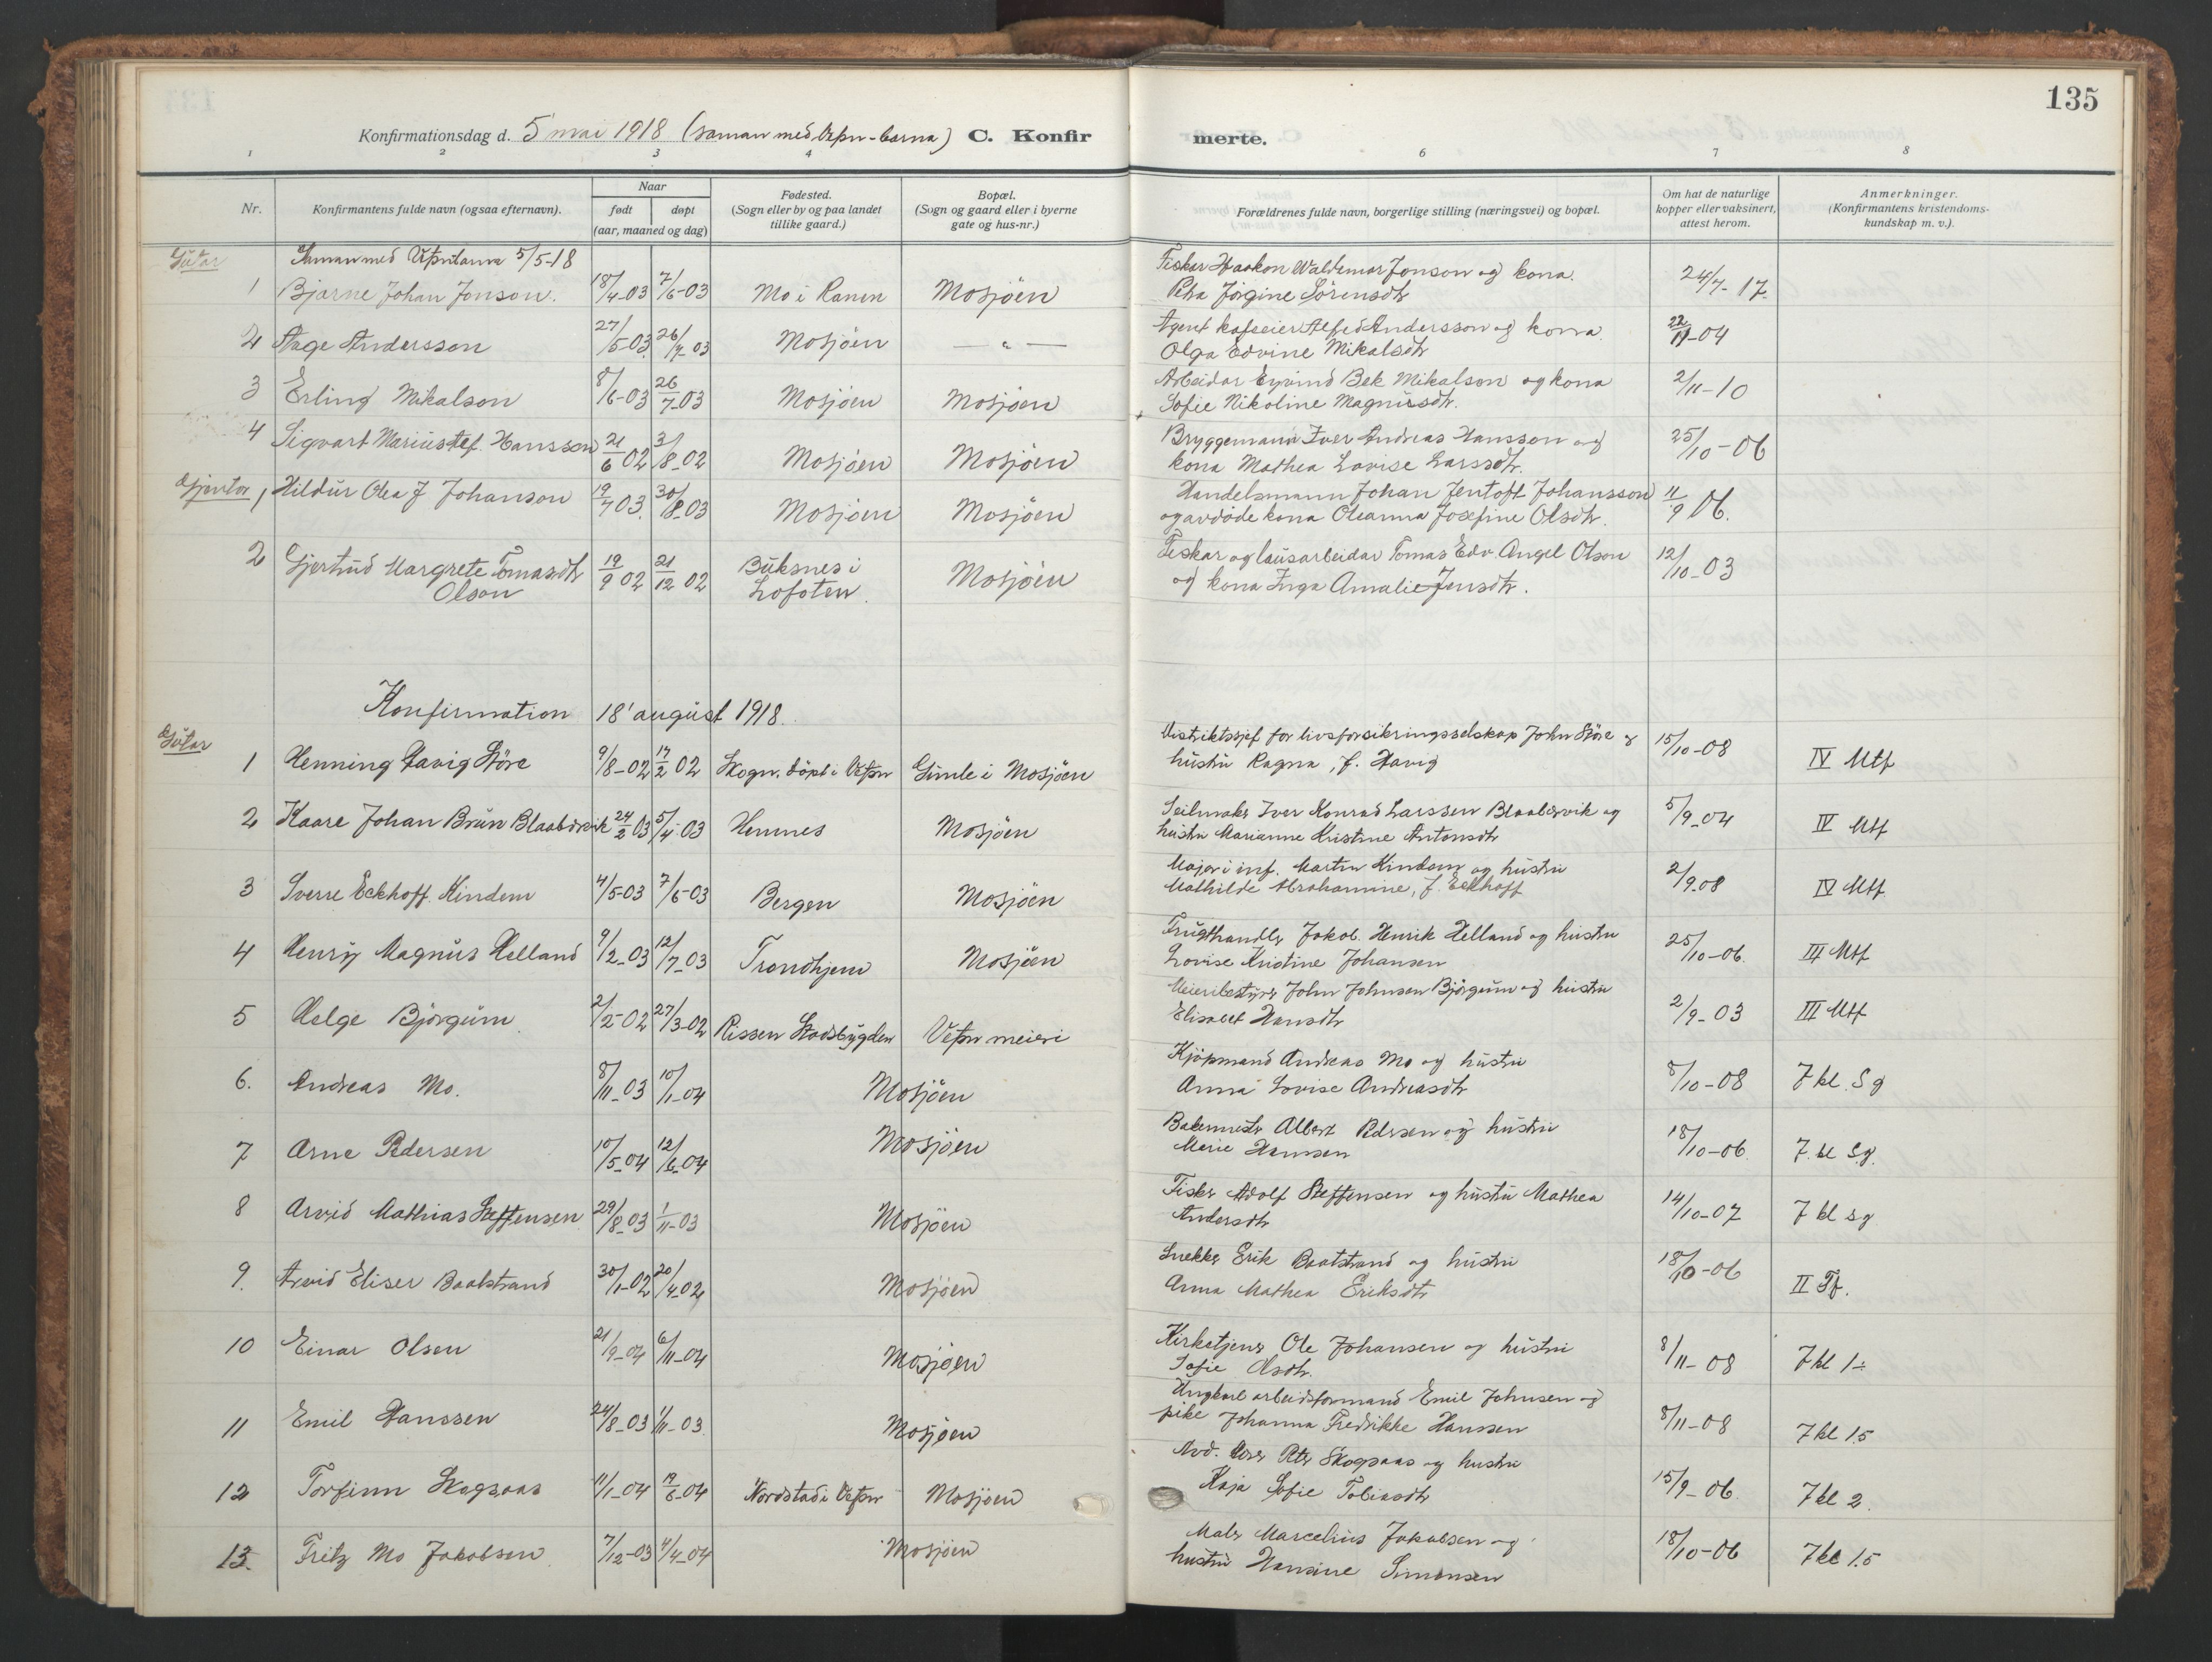 135
Konfirmationsdag d. 5 mai 1918 (saman med Vefsn-barna) C. Konfirmerte.
1 2 3 4 6 7 8
Nr. Konfirmantens fulde navn (ogsaa efternavn). Naar født døpt (aar, maaned og dag) Fødested. (Sogn eller by og paa landet tillike gaard.) Bopæl. (Sogn og gaard eller i byerne gate og hus-nr.) Forældrenes fulde navn, borgerlige stilling (næringsvei) og bopæl. Om hat de naturlige kopper eller vaksinert, attest herom. Anmerkninger. (Konfirmantens kristendoms-kundskap m. v.).
Gutar Saman med Vefsnbarna 5/5-18
1 Bjarne Johan Jonson. 18/4-03 7/6-03 Mo i Ranen Mosjöen Fiskar Haakon Waldemar Jonson og kona Petra Jörgine Sörensdtr 24/7-17.
2 Aage Andersson 27/5-03 26/7-03 Mosjöen —"— Agent kafeeier Alfred Andersson og kona Olga Edvine Mikalsdtr 22/11-04
3 Erling Mikalson 8/6-03 26/7-03 Mosjöen Mosjöen Arbeidar Eyvind Bek Mikalson og kona Sofie Nikoline Magnusdtr. 2/11-10
4 Sigvart Marius Hansson 21/6 02 3/8-02 Mosjöen Mosjöen Bryggemann Iver Andreas Hansson og kona Mathea Lovise Larsdtr. 25/10-06
Gjentor 1 Hildur Olea J Johanson 19/7 03. 30/8-03 Mosjöen Mosjöen Handelsmann Johan Jentoft Johansson og avdöde kona Oleanna Josefine Olsdtr. 11/9 06.
2 Gjertrud Margrete Tomasdtr Olson 19/9 02 21/12 02 Buksnes i Lofoten. Mosjöen Fiskar og lausarbeidar Tomas Edv. Angel Olson og kona Inga Amalie Jensdtr. 12/10-03
Konfirmation 18' august 1918.
Gutar
1 Henning Havig Störe 9/8-02 17/2 02 Skogn, döpt i Vefsn Gimle i Mosjöen Distriktssjef for livsforsikringsselskap John Störe og hustru Ragna, f. Havig 15/10-08 IV Mtf
2 Kaare Johan Brun Blaabærvik 24/2 03 5/4-03 Hemnes Mosjöen Seilmaker Iver Konrad Larssen Blaabærvik og hustru Marianne Kristine Antonsdtr 5/9-04 IV Mtf
3 Sverre Eckhoff Kindem 4/5-03 7/6-03 Bergen Mosjöen Major i inf. Martin Kindem og hustru Mathilde Abrahamine, f. Eckhoff 2/9.08 IV Mtf.
4 Henry Magnus Helland 9/2-03 12/7-03 Trondhjem Mosjöen Frugthandler Jakob Henrik Helland og hustru Lovise Kristine Johansen 25/10-06. III Mtf
5 Helge Björgum 2/2-02 27/3-02 Rissen Stadsbygden Vefsn meieri Meieribestyrer John Johnsen Björgum og hustru Elisabet Hansdtr 2/9-03 III Mtf
6. Andreas Mo. 8/11-03 10/1-04 Mosjöen Kjöpmand Andreas Mo og hustru Anna Lovise Andreasdtr 8/10-08 7 kl. Sg
7 Arne Pedersen 10/5-04 12/6-04 Mosjöen Bakermester Albert Pedersen og hustru Marie Hansen 18/10-06. 7. kl Sg.
8 Arvid Mathias Steffensen 29/8-03 1/11-03 Mosjöen Fisker Adolf Steffensen og hustru Mathea Andersdtr 14/10-07 7 kl sg
9. Arvid Eliser Baatstrand 30/1-02 20/4-02 Mosjöen Snekker Erik Baatstrand og hustru Anna Mathea Eriksdtr 18/10-06 II Tf.
10 Einar Olsen 21/9-04 6/11-04 Mosjöen Kirketjener Ole Johansen og hustru Sofie Olsdtr. 8/11-08 7 kl 1÷
11 Emil Hanssen 24/8-03 1/11-03 Mosjöen Ungkarl arbeidsformand Emil Johnsen og pike Johanna Fredrikke Hanssen 8/11-08 7 kl 1.5
12 Torfinn Skogsaas 11/1-04 19/6-04 Nordstad i Vefsn Mosjöen Avd. Peter Skogsaas og hustru Kaja Sofie Tobiasdtr 15/9-06. 7 kl 2.
13. Fritz Mo Jakobsen 7/12-03 4/4-04 Mosjöen Maler Marcelius Jakobsen og hustru Hansine Simonsen 18/10-06 7 kl 1.5